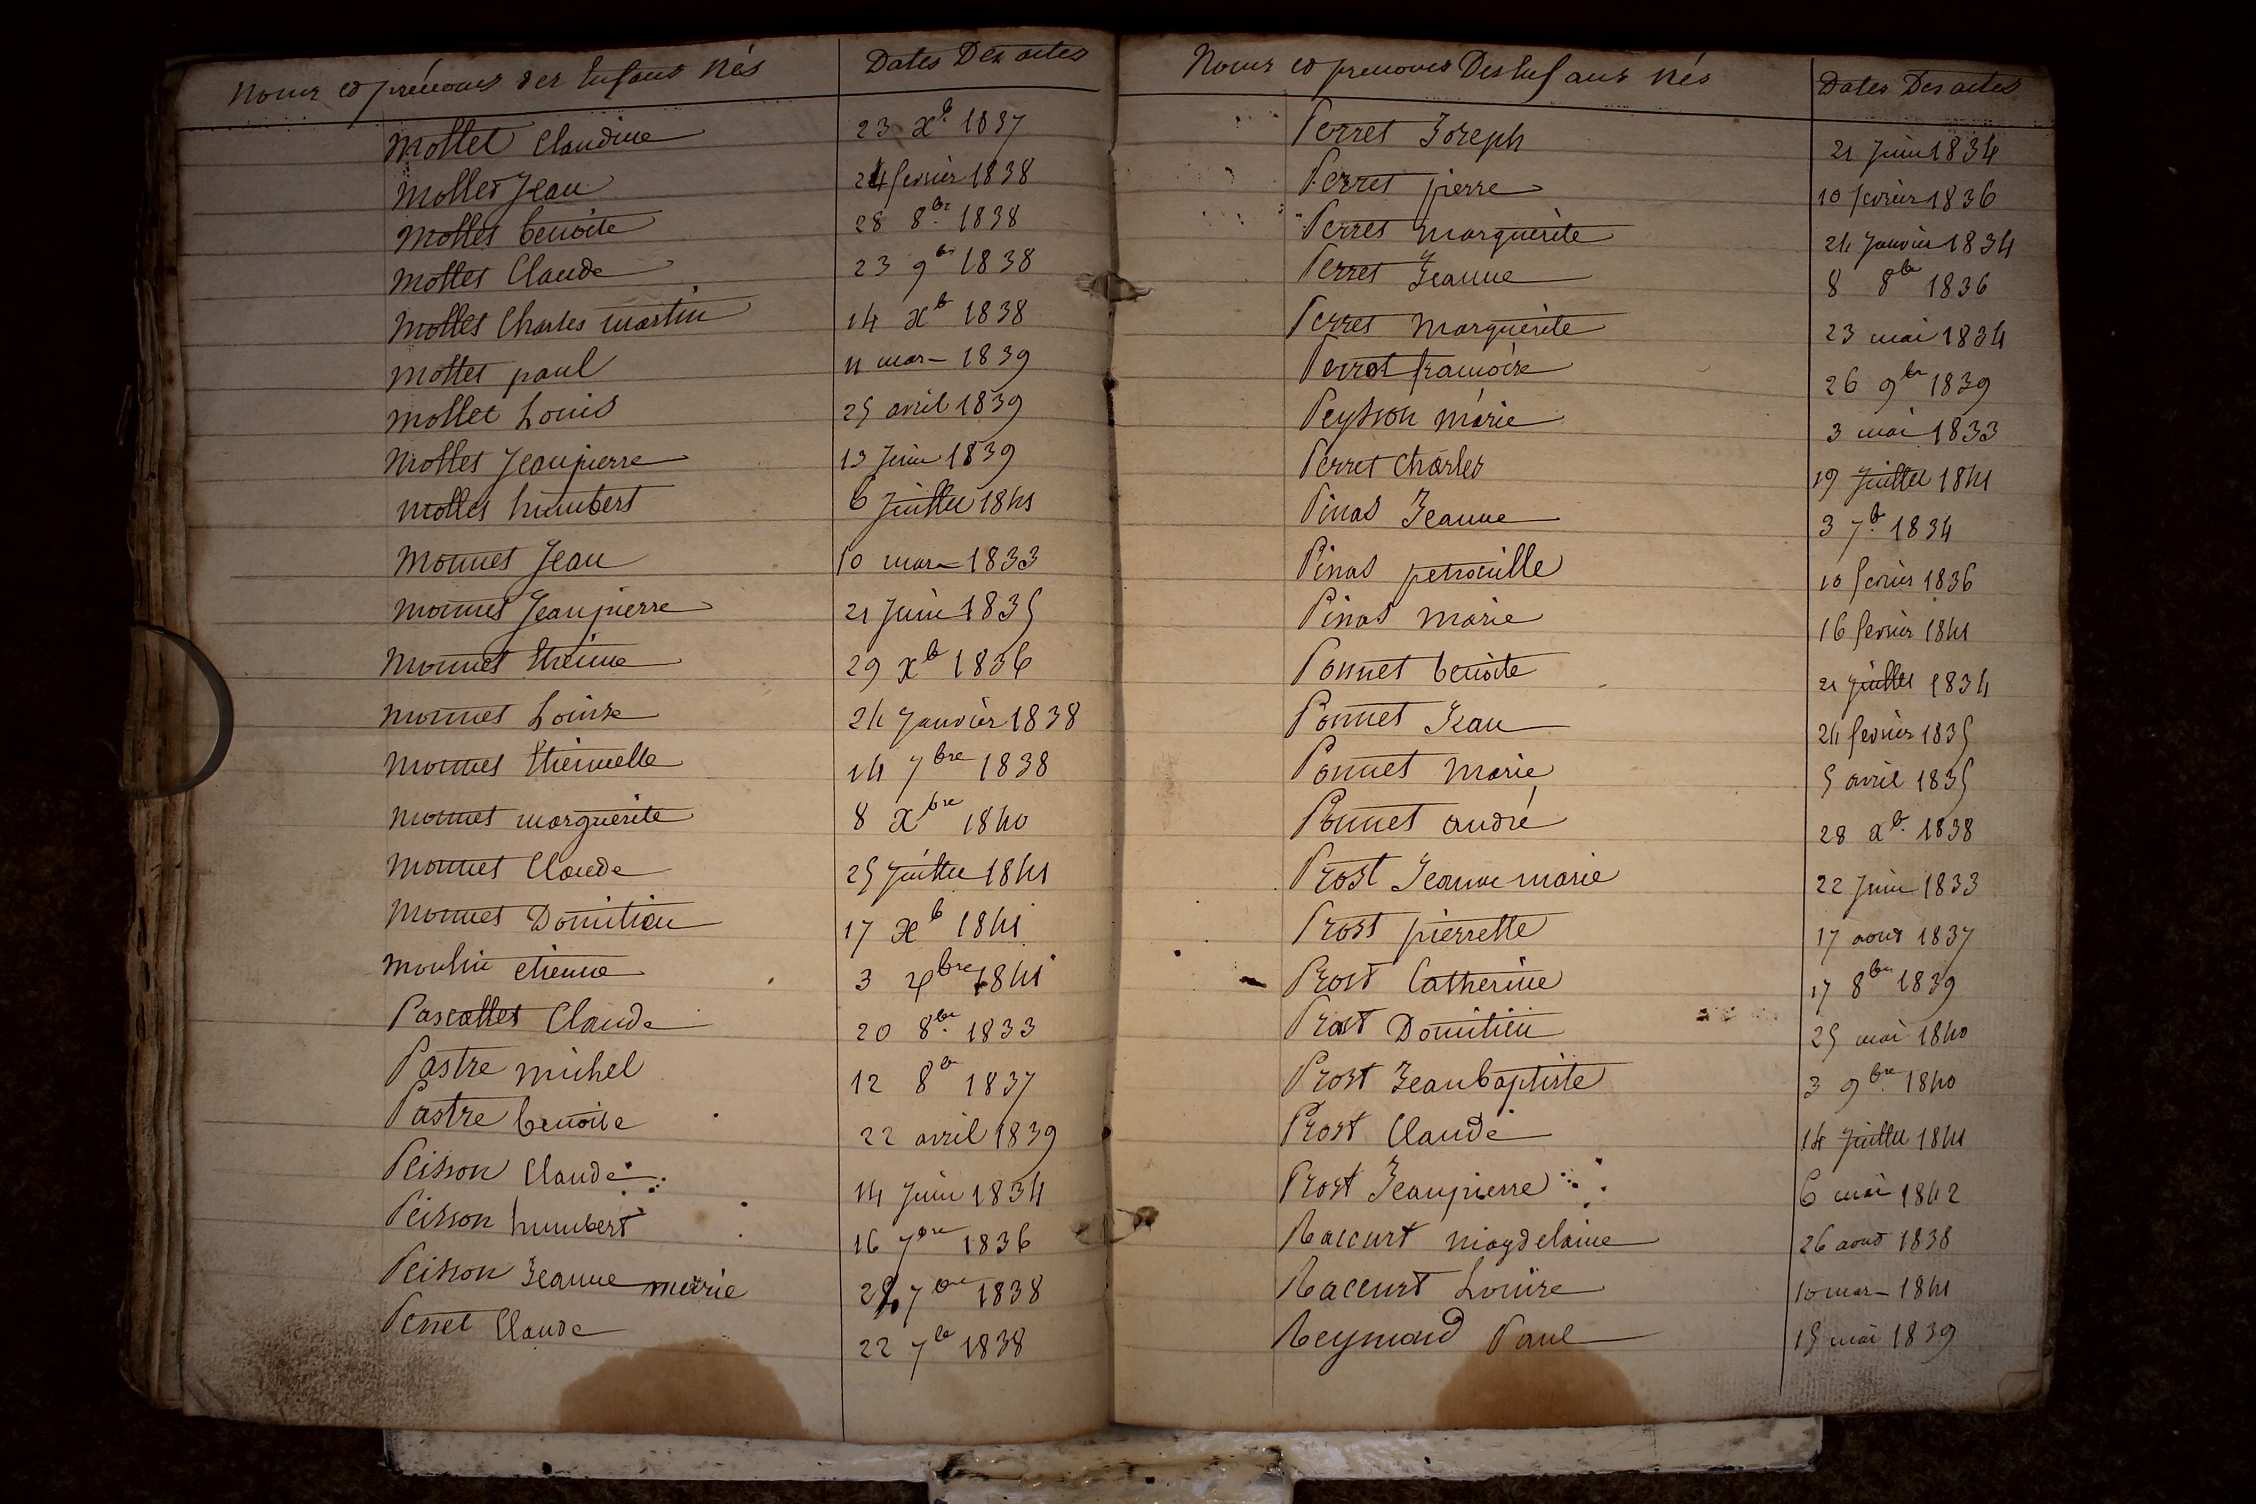 Noms et prénoms des Enfans Nés Dates Des actes
Mollet Claudine 23 Xb. 1837
Mollet Jean 24 fevrier 1838
Mollet benoite 28 8bre 1838
Mollet Claude 23 9bre 1838
Mollet Charles martin 14 Xb 1838
Mollet paul 11 mars 1839
Mollet Louis 25 avril 1839
Mollet Jeanpierre 13 Juin 1839
Mollet humbert 6 Juillet 1841
Monnet Jean 10 mars 1833
Monnet Jeanpierre 21 Juin 1835
Monnet Etienne 29 Xb 1836
Monnet Louise 24 Janvier 1838
Monnet Etiennette 14 7bre 1838
Monnet marguerite 8 Xbre 1840
Monnet Claude 25 Juillet 1841
Monnet Domitien 17 Xb 1841
Moulin etienne 3 Xbre 1841
Pascallet Claude 20 8bre 1833
Pastre michel 12 8b 1837
Pastre benoite 22 avril 1839
Peisson Claude 14 Juin 1834
Peisson humbert 16 7bre 1836
Peisson Jeanne marie 7bre 1838
Perret Claude 22 7b 1838
Noms et prenoms Des Enfans Nés Dates Des actes
Perret Joseph 21 Juin 1834
Perret pierre 10 fevrier 1836
Perret marguerite 24 Janvier 1834
Perret Jeanne 8 8b 1836
Perret marguerite 23 mai 1834
Perrot francoise 26 9bre 1839
Peysson marie 3 mai 1833
Perret Charles 19 Juillet 1841
Pinas Jeanne 3 7b. 1834
Pinas petronille 10 fevrier 1836
Pinas marie 16 fevrier 1841
Ponnet benoite 21 Juillet 1834
Ponnet Jean 24 fevrier 1835
Ponnet marie 5 avril 1835
Ponnet andré 28 Xb. 1838
Prost Jeanne marie 22 Juin 1833
Prost pierrette 17 aout 1837
Prost Catherine 17 8bre 1839
Prost Domitien 25 mai 1840
Prost Jeanbaptiste 3 9bre 1840
Prost Claude 14 Juillet 1841
Prost Jeanpierre 6 mai 1842
Raccurt magdelaine 26 aout 1838
Raccurt Louise 10 mars 1841
Reymond Paul 15 mai 1839